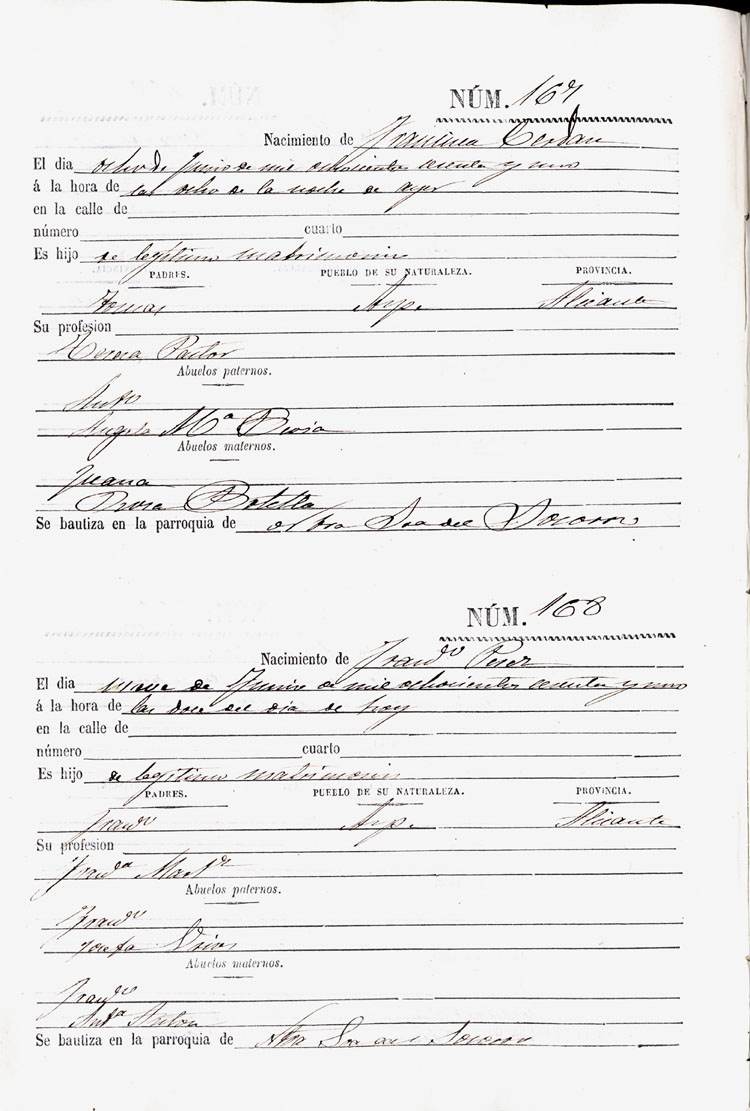 NÚM. 167
Nacimiento de Francisca Cerdan
El dia ocho de Junio de mil ochocientos sesenta y uno
á la hora de las ocho de la noche de ayer
en la calle de
número cuarto
Es hijo de legitimo matrimonio
PADRES. PUEBLO DE SU NATURALEZA. PROVINCIA.
Tomas Aspe Alicante
Su profesion
Teresa Pastor
Abuelos paternos.
Antº
Angela Mª
Abuelos maternos.
Rosa Botella
Se bautiza en la parroquia de Sra del Socorro
NÚM. 168
Nacimiento de Francº Perez
El dia nueve de Junio de mil ochocientos sesenta y uno
á la hora de las doce del dia de hoy
en la calle de
número cuarto
Es hijo de legitimo matrimonio
PADRES. PUEBLO DE SU NATURALEZA. PROVINCIA.
Francº Aspe Alicante
Su profesion
Francª
Abuelos paternos.
Francº
Josefa
Abuelos maternos.
Francº
Antª
Se bautiza en la parroquia de Ntra Sra del Socorro